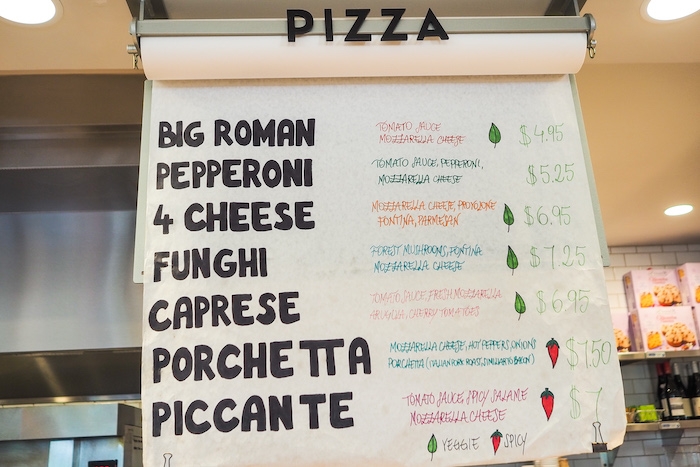 PIZZA
BIG ROMAN
TOMATO SAUCE
MOZZARELLA CHEESE
$4.95
PEPPERONI
TOMATO SAUCE, PEPPERONI,
MOZZARELLA CHEESE
$5.25
4 CHEESE
MOZZARELLA CHEESE, PROVOLONE
FONTINA, PARMESAN
$6.95
FUNGHI
FOREST MUSHROOMS, FONTINA
MOZZARELLA CHEESE
$7.25
CAPRESE
TOMATO SAUCE, FRESH MOZZARELLA
ARUGULA, CHERRY TOMATOES
$6.95
PORCHETTA
MOZZARELLA CHEESE, HOT PEPPERS, ONIONS
PORCHETTA (ITALIAN PORK ROAST, SIMILAR TO BACON)
$7.50
PICCANTE
TOMATO SAUCE SPICY SALAME
MOZZARELLA CHEESE
$7
VEGGIE SPICY